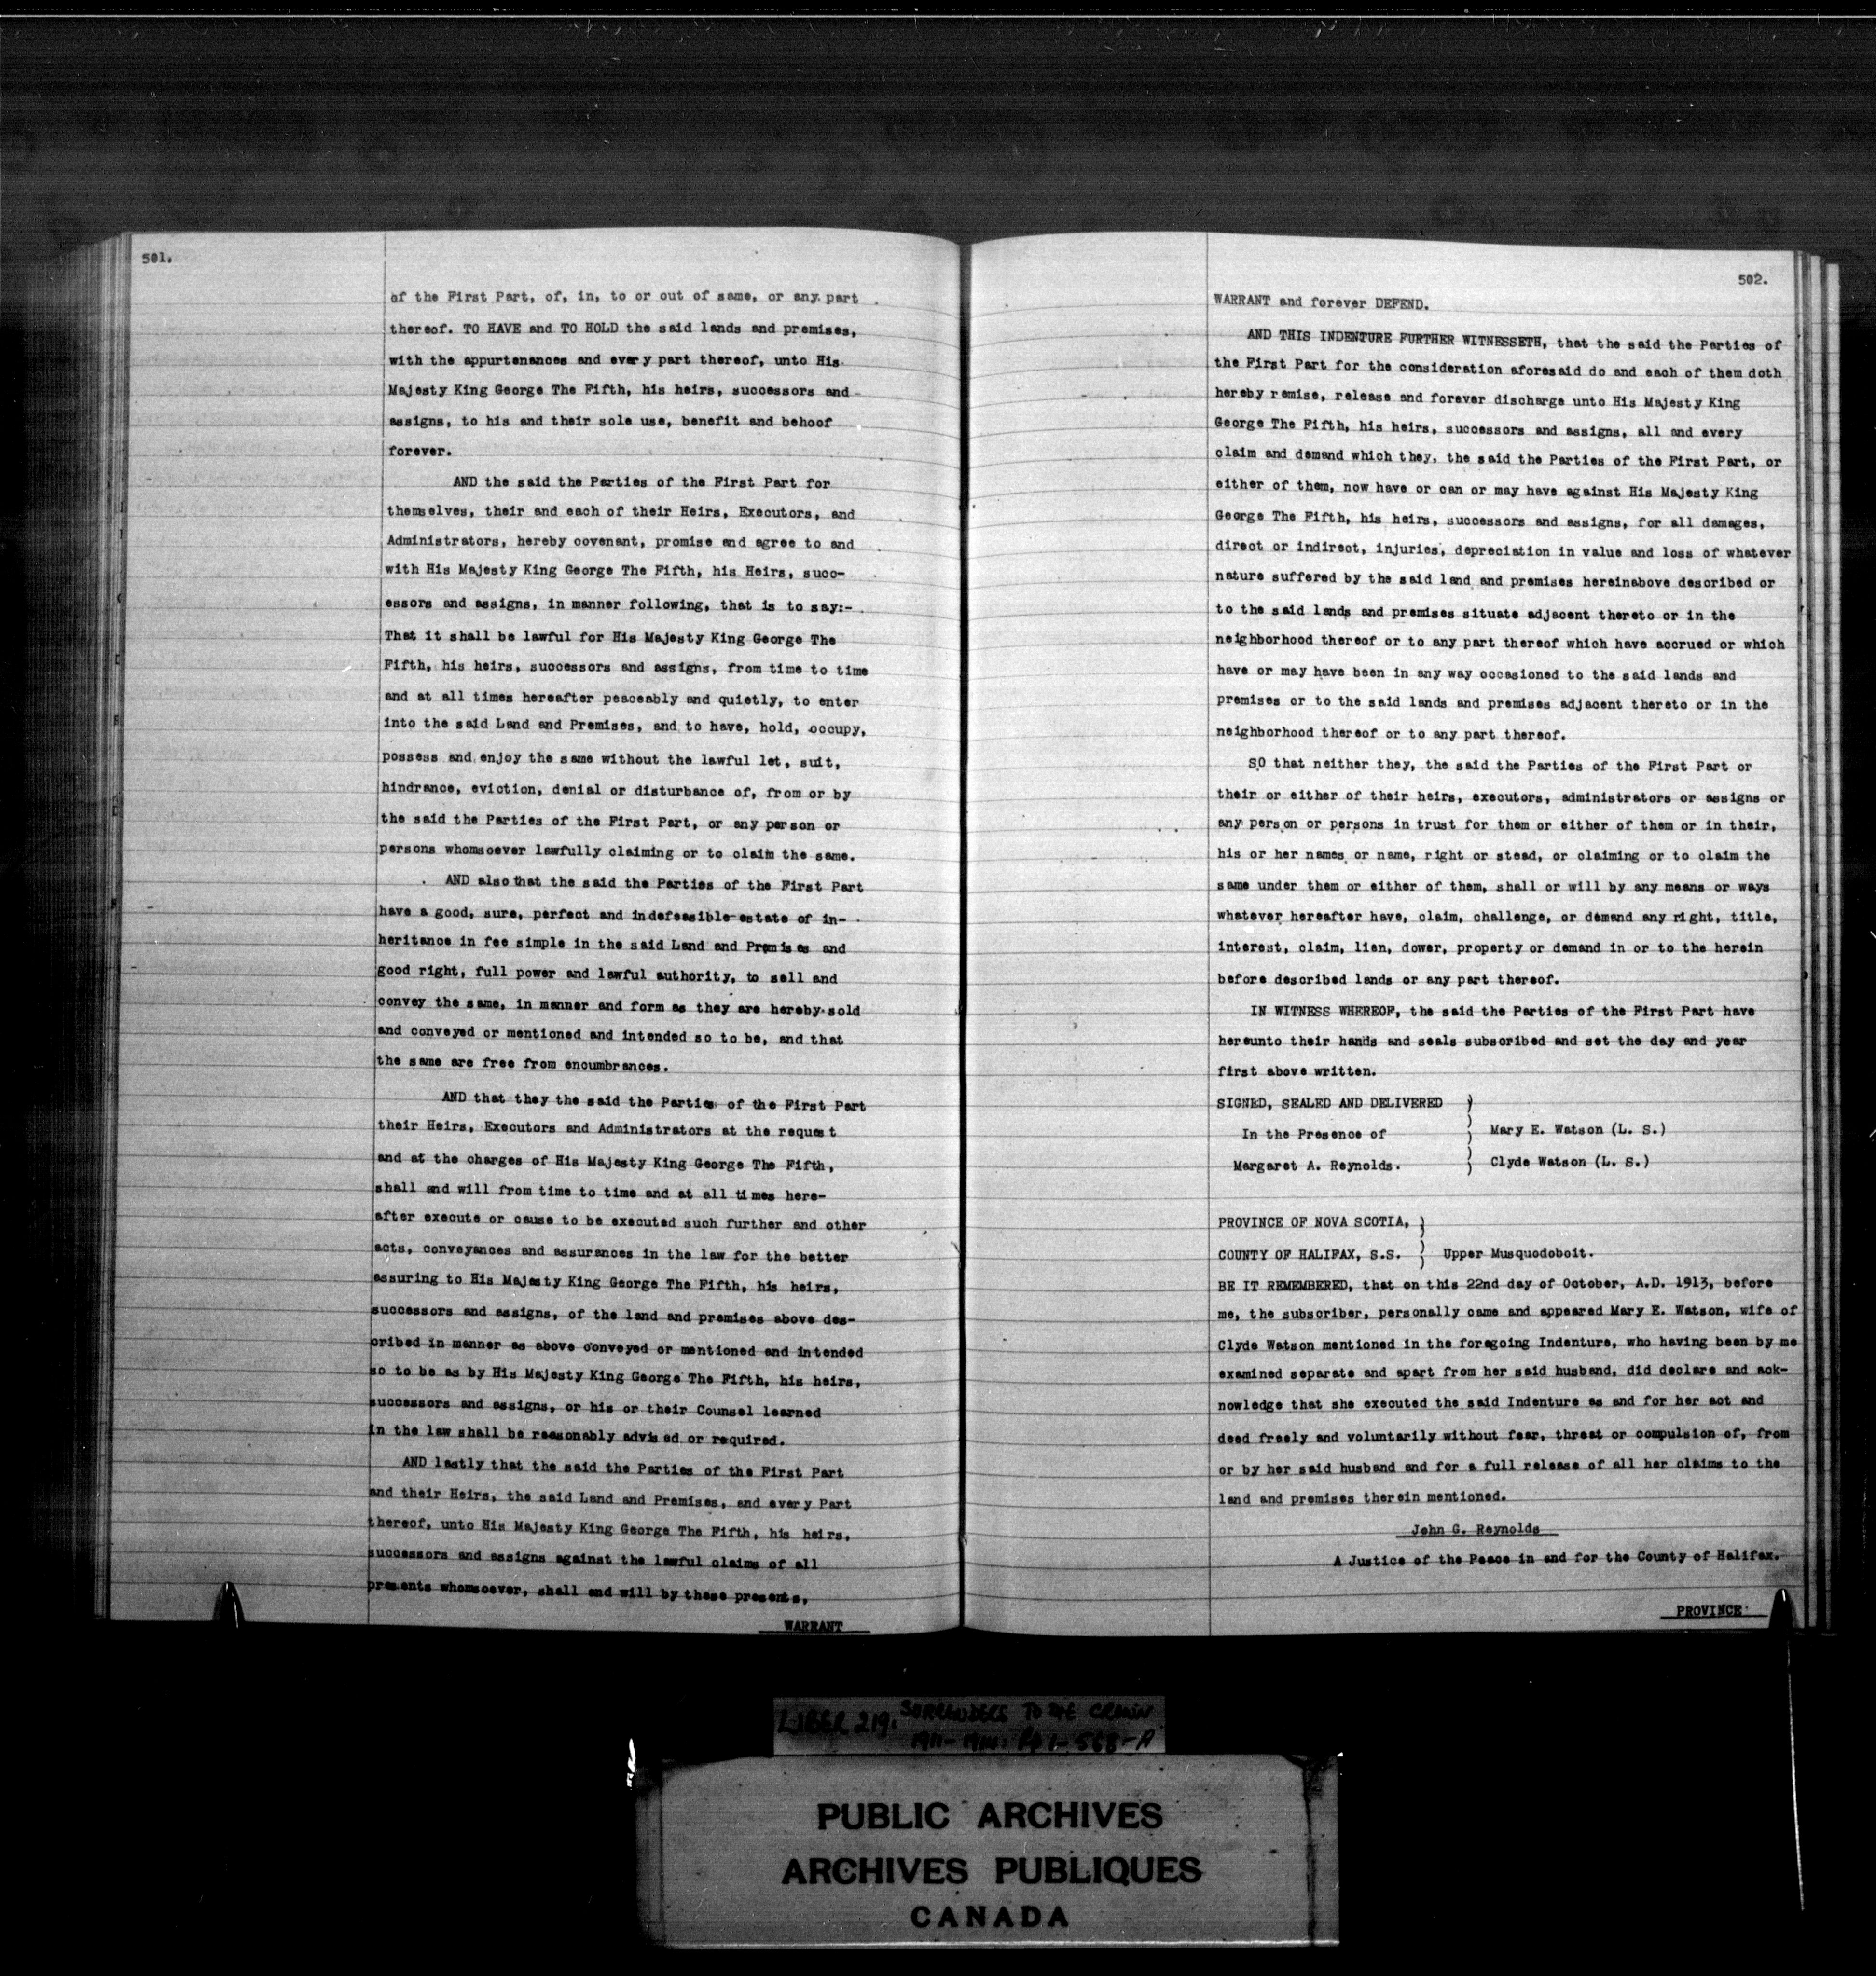 501.
of the First Part, of, in, to or out of same, or any part
thereof. TO HAVE and TO HOLD the said lands and premises,
with the appurtenances and every part thereof, unto His
Majesty King George The Fifth, his heirs, successors and
assigns, to his and their sole use, benefit and behoof
forever.
AND the said the Parties of the First Part for
themselves, their and each of their Heirs, Executors, and
Administrators, hereby covenant, promise and agree to and
with His Majesty King George The Fifth, his Heirs, succ-
essors and assigns, in manner following, that is to say:-
That it shall be lawful for His Majesty King George The
Fifth, his heirs, successors and assigns, from time to time
and at all times hereafter peaceably and quietly, to enter
into the said Land and Premises, and to have, hold, occupy,
possess and enjoy the same without the lawful let, suit,
hindrance, eviction, denial or disturbance of, from or by
the said the Parties of the First Part, or any person or
persons whomsoever lawfully claiming or to claim the same.
AND also that the said the Parties of the First Part
have a good, sure, perfect and indefeasible estate of in-
heritance in fee simple in the said Land and Premises and
good right, full power and lawful authority, to sell and
convey the same, in manner and form as they are hereby sold
and conveyed or mentioned and intended so to be, and that
the same are free from encumbrances.
AND that they the said the Parties of the First Part
their Heirs, Executors and Administrators at the request
and at the charges of His Majesty King George The Fifth,
shall and will from time to time and at all times here-
after execute or cause to be executed such further and other
acts, conveyances and assurances in the law for the better
assuring to His Majesty King George The Fifth, his heirs,
successors and assigns, of the land and premises above des-
cribed in manner as above conveyed or mentioned and intended
so to be as by His Majesty King George The Fifth, his heirs,
successors and assigns, or his or their Counsel learned
in the law shall be reasonably advised or required.
AND lastly that the said the Parties of the First Part
and their Heirs, the said Land and Premises, and every Part
thereof, unto His Majesty King George The Fifth, his heirs,
successors and assigns against the lawful claims of all
presents whomsoever, shall and will by these presents,
WARRANT
502.
WARRANT and forever DEFEND.
AND THIS INDENTURE FURTHER WITNESSETH, that the said the Parties of
the First Part for the consideration aforesaid do and each of them doth
hereby remise, release and forever discharge unto His Majesty King
George The Fifth, his heirs, successors and assigns, all and every
claim and demand which they, the said the Parties of the First Part, or
either of them, now have or can or may have against His Majesty King
George The Fifth, his heirs, successors and assigns, for all damages,
direct or indirect, injuries, depreciation in value and loss of whatever
nature suffered by the said land and premises hereinabove described or
to the said lands and premises situate adjacent thereto or in the
neighborhood thereof or to any part thereof which have accrued or which
have or may have been in any way occasioned to the said lands and
premises or to the said lands and premises adjacent thereto or in the
neighborhood thereof or to any part thereof.
SO that neither they, the said the Parties of the First Part or
their or either of their heirs, executors, administrators or assigns or
any person or persons in trust for them or either of them or in their,
his or her names or name, right or stead, or claiming or to claim the
same under them or either of them, shall or will by any means or ways
whatever hereafter have, claim, challenge, or demand any right, title,
interest, claim, lien, dower, property or demand in or to the herein
before described lands or any part thereof.
IN WITNESS WHEREOF, the said the Parties of the First Part have
hereunto their hands and seals subscribed and set the day and year
first above written.
SIGNED, SEALED AND DELIVERED )
In the Presence of ) Mary E. Watson (L. S.)
Margaret A. Reynolds. ) Clyde Watson (L. S.)
PROVINCE OF NOVA SCOTIA, )
COUNTY OF HALIFAX, S.S. ) Upper Musquodoboit.
BE IT REMEMBERED, that on this 22nd day of October, A.D. 1913, before
me, the subscriber, personally came and appeared Mary E. Watson, wife of
Clyde Watson mentioned in the foregoing Indenture, who having been by me
examined separate and apart from her said husband, did declare and ack-
nowledge that she executed the said Indenture as and for her act and
deed freely and voluntarily without fear, threat or compulsion of, from
or by her said husband and for a full release of all her claims to the
land and premises therein mentioned.
John G. Reynolds
A Justice of the Peace in and for the County of Halifax.
PROVINCE
LIBER 219. SURRENDERS TO THE CROWN
1911-1914: Pp 1-568-A
PUBLIC ARCHIVES
ARCHIVES PUBLIQUES
CANADA